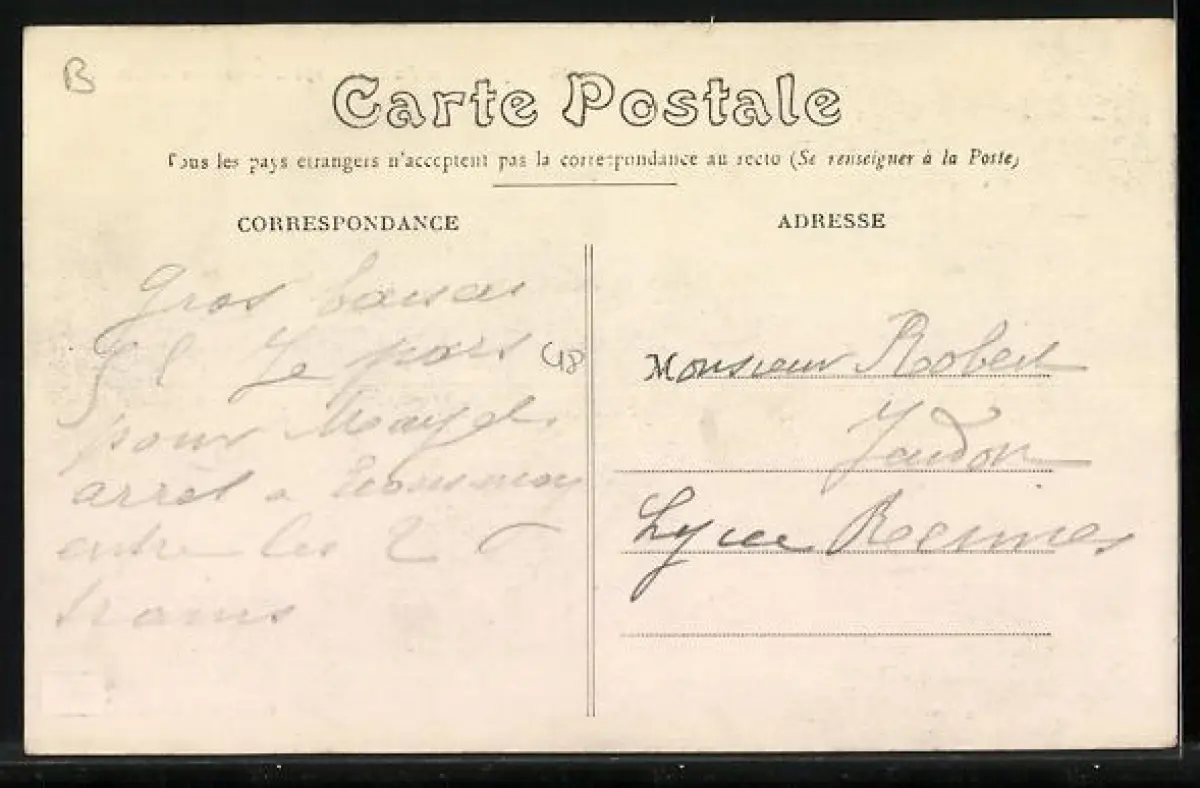 B
Carte Postale
Tous les pays étrangers n'acceptent pas la correspondance au recto (Se renseigner à la Poste)
CORRESPONDANCE
ADRESSE
Gros baisers
Je pars
pour
arret a
entre les 2
trains
Monsieur Robert
Jaudon
Lycee Rennes